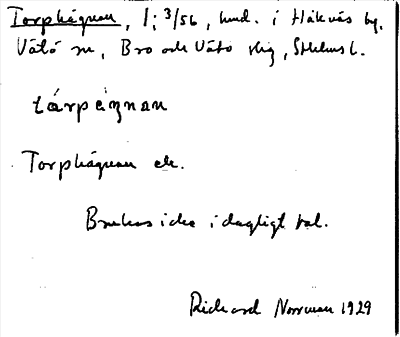 Torphägnan, 1:3/56, hmd. i Håknäs by,
Vätö sn, Bro och Vätö skg, Sthlms l.
tárpägnan
Torphägnan ek.
Brukas icke i dagligt tal.
Richard Norrman 1929